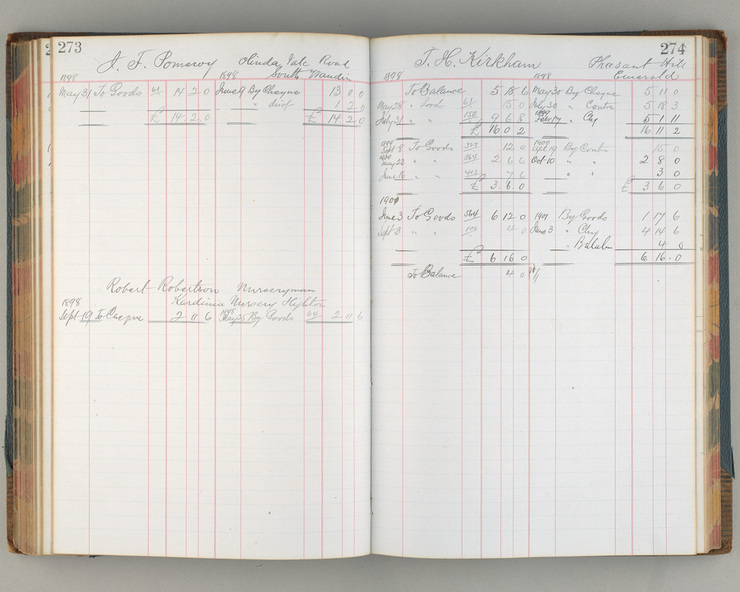 273
J. F. Pomeroy Olinda Vale Road
South Wandin
1898 1898
May 31 To Goods 61 14 2 0 June 9 By Cheque 13 0 0
" disct 1 2 0
£ 14 2 0 £ 14 2 0
Robert Robertson Nurseryman
Kardinia Nursery Highton
1898 1898
Sept 19 To Cheque 2 0 6 May 25 By Goods 64 2 0 6
274
T. H. Kirkham Pheasant Hill
Emerald
1898 1898
To Balance 5 15 6 May 30 By Cheque 5 11 0
May 28 " Goods 61 15 0 July 30 " Contra 5 18 3
July 31 " " 9 6 8 Feb 17 " Chq 5 1 11
£ 16 0 2 16 11 2
Sept 8 To Goods 12 0 Sept 19 By Contra 15 0
May 23 " " 2 6 6 Oct 10 " " 2 8 0
June " " 7 6 " " 3 0
£ 3 6 0 £ 3 6 0
1901
June 3 To Goods 364 6 12 0 By Goods 1 17 6
Sept 3 " " 4 0 June 3 " Chq 4 14 6
" Balance 4 0
£ 6 16 0 6 16 0
To Balance 4 0